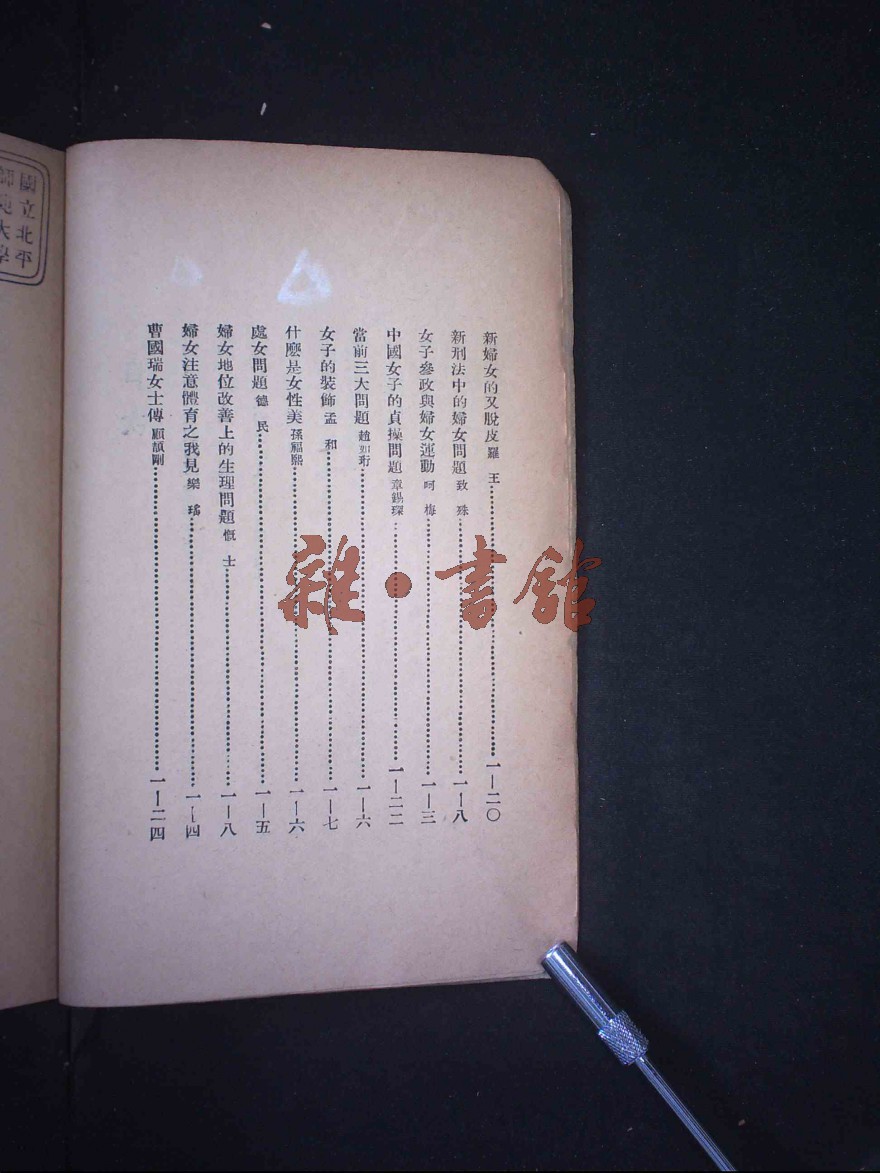 新婦女的又脫皮 羅王………1—20
新刑法中的婦女問題 致殊………一—八
女子參政與婦女運動 呵梅………一—三
中國女子的貞操問題 章錫琛………一—二二
當前三大問題 趙如珩………一—六
女子的裝飾 孟和………一—七
什麽是女性美 孫福熙………一—六
處女問題 德民………一—五
婦女地位改善上的生理問題 慨士………一—八
婦女注意體育之我見 樂瑤………一—四
曹國瑞女士傳 顧頡剛………一—二四
國立北平
師範大學
雜·書館